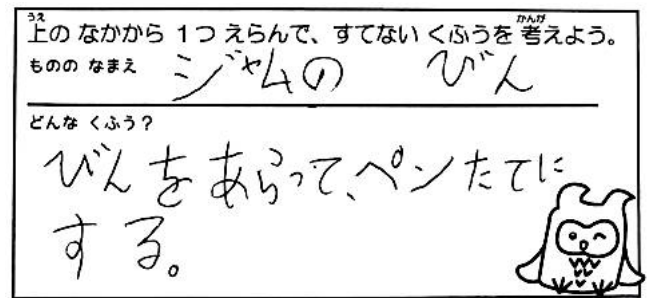 上の なかから 1つ えらんで、すてない くふうを 考えよう。
ものの なまえ ジャムの びん
どんな くふう?
びんをあらって、ペンたてに
する。